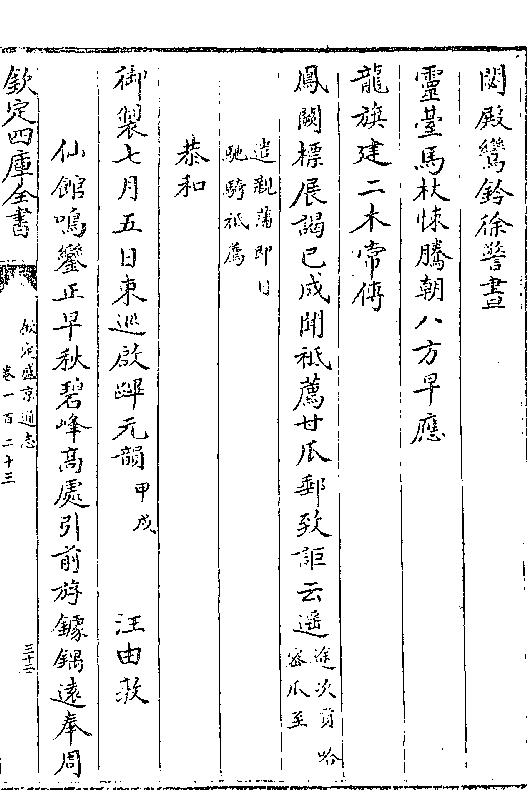 閟殿鸞鈴徐警晝
靈臺馬杖悚騰朝八方早應
龍旗建二木常傳
鳳闕標展謁已成聞祗薦甘瓜郵致詎云遥途次貢哈密瓜至
遣親藩即日馳騎祗薦
恭和
御製七月五日東巡啟蹕元韻甲戌 汪由敦
仙館鳴鑾正早秋碧峰高處引前斿鐻鍝遠奉周
欽定四庫全書
欽定盛京通志
卷一百二十三
三十三